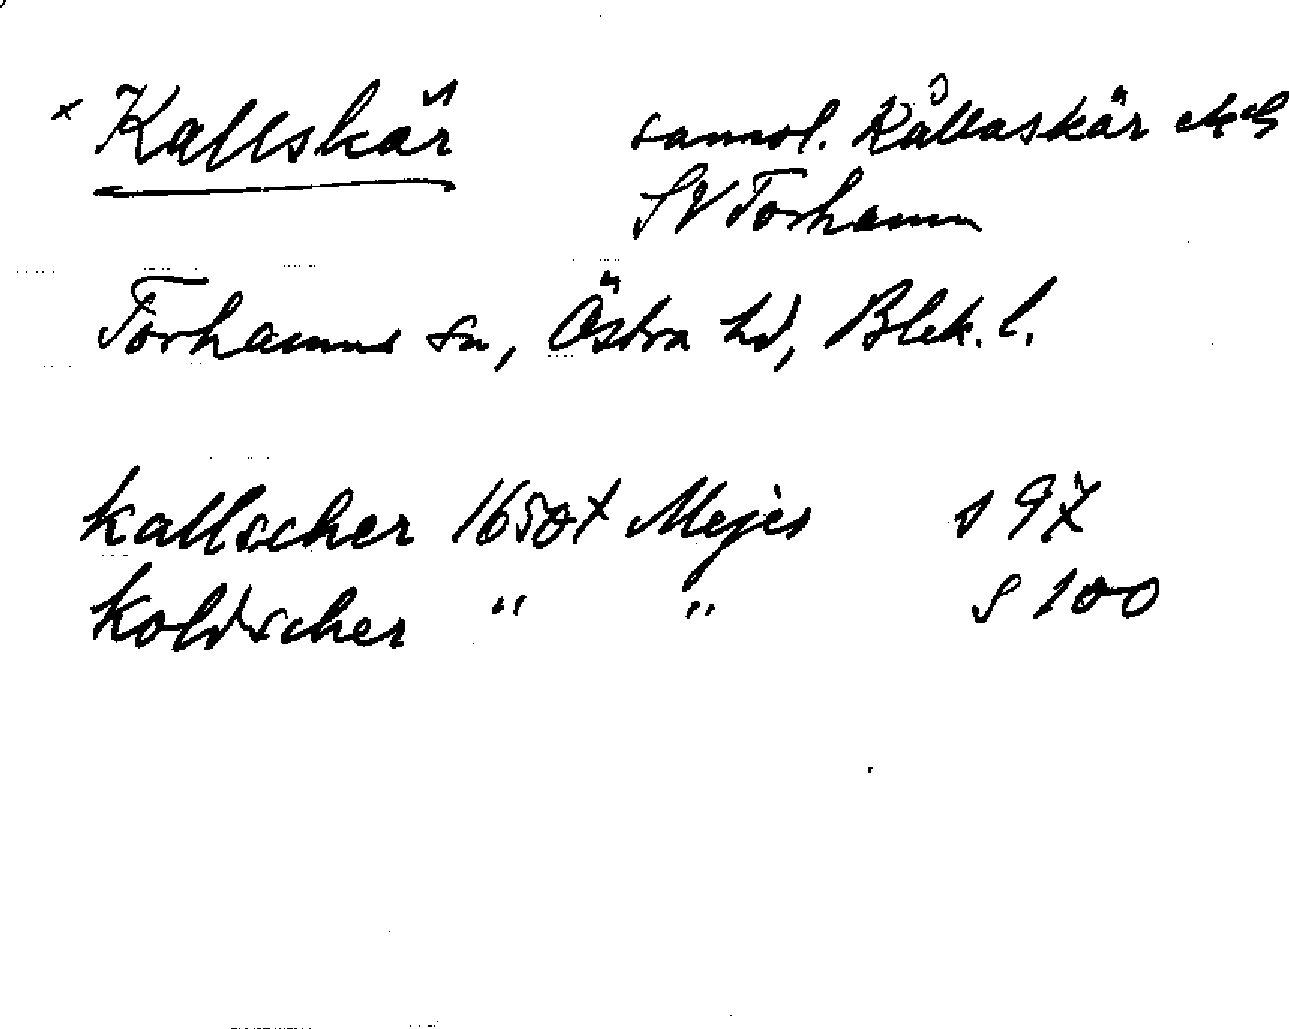 × Kallskär
sannol. Kållaskär
SV Torhamn
Torhamns sn, Östra hd, Blek. l.
kallscher 1650t Mejer s 97
koldscher " " s 100